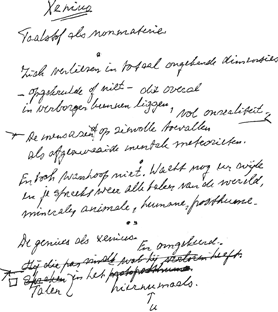 Xenius
Taalstof als nonmaterie
Zich verliezen in totaal ongekende dimensies
- opgekuude of niet - die overal
in verborgen bronnen liggen, vol onrealiteit,
De mens azend op zienvolle toevallen
als afgezwaaide mentale meteorieten.
En toch wanhoop niet. Wacht nog een wijle
en je spreekt weer alle talen van de wereld,
minerale, animale, humane, posthume.
De genius als xenius. En omgekeerd.
Hij die pas vindt wat hij verloren heeft.
Spreken in het
Talen hiernumaals.
u